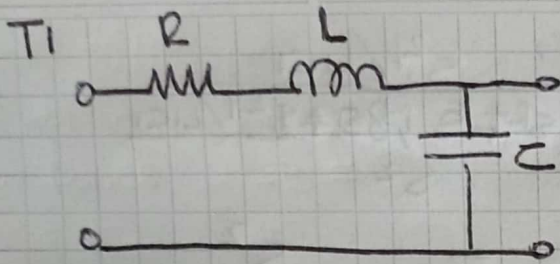 T1 R L
C